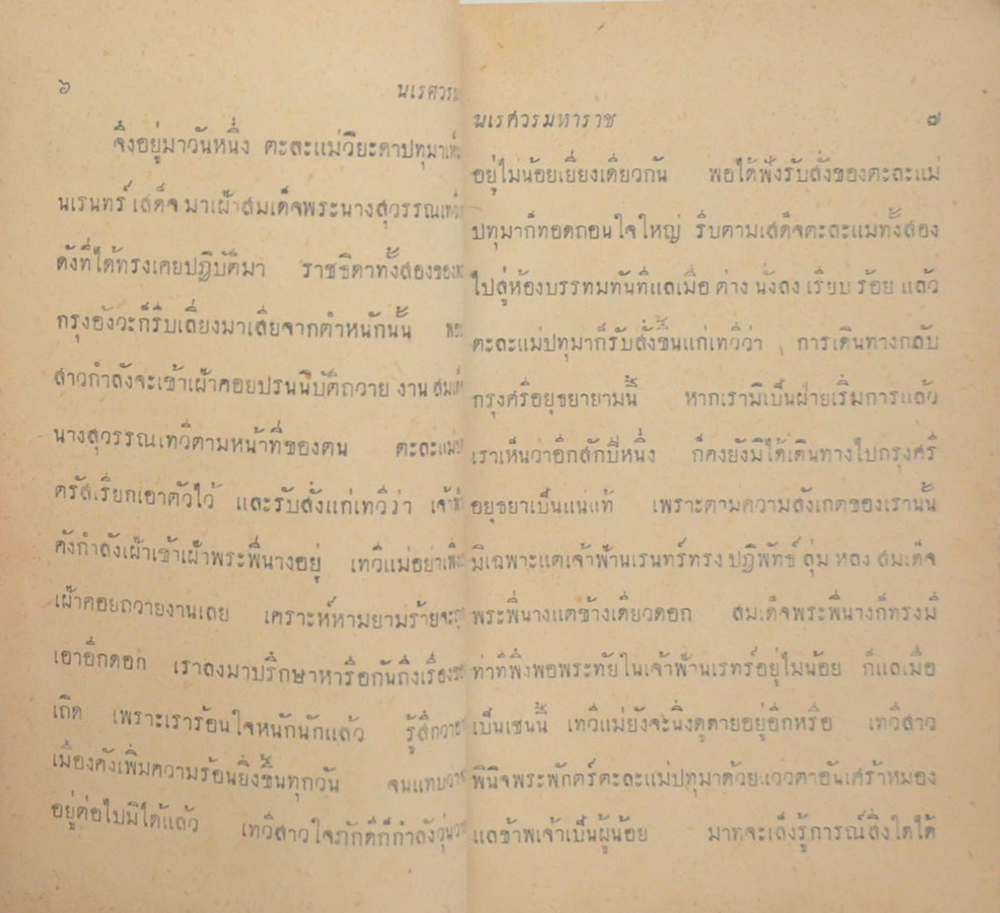 ๖
นเรศวร
จึงอยู่มาวันหนึ่ง ตะละแม่วิยะดาปทุมา
นเรนทร์ เสด็จ มาเฝ้าสมเด็จพระนางสุวรรณ
ดังที่ได้ทรงเคยปฏิบัติมา ราชธิดาทั้งสอง
กรุงอังวะก็รีบเลี่ยงมาเสียจากตำหนักนั้น
สาวกำลังจะเข้าเฝ้าคอยปรนนิบัติถวาย งาน
นางสุวรรณเทวีตามหน้าที่ของตน ตะละแม่
ตรัสเรียกเอาตัวไว้ และรับสั่งแก่เทวีว่า
คังกำลังเฝ้าเข้าเฝ้าพระพี่นางอยู่ เทวีแม่อย่า
เฝ้าคอยถวายงานเลย เคราะห์หามยามร้ายจะ
เอาอีกดอก เราลงมาปรึกษาหารือกันถึงเรื่อง
เถิด เพราะเราร้อนใจหนักนักแล้ว รู้สึก
เมืองคังเพิ่มความร้อนยิ่งขึ้นทุกวัน จนแทบ
อยู่ต่อไปมิได้แล้ว เทวีสาวใจภักดีก็กำลัง
นเรศวรมหาราช
๗
อยู่ไม่น้อยเยี่ยงเดียวกัน พอได้ฟังรับสั่งของตะละแม่
ปทุมาก็ทอดถอนใจใหญ่ รีบตามเสด็จตะละแม่ทั้งสอง
ไปสู่ห้องบรรทมทันทีแลเมื่อ ต่าง นั่งลง เรียบ ร้อย แล้ว
ตะละแม่ปทุมาก็รับสั่งขึ้นแก่เทวีว่า การเดินทางกลับ
กรุงศรีอยุธยายามนี้ หากเรามิเป็นฝ่ายเริ่มการแล้ว
เราเห็นว่าอีกสักปีหนึ่ง ก็คงยังมิได้เดินทางไปกรุงศรี
อยุธยาเป็นแน่แท้ เพราะตามความสังเกตของเรานั้น
มิเฉพาะแต่เจ้าฟ้านเรนทร์ทรง ปฏิพัทธ์ ลุ่ม หลง สมเด็จ
พระพี่นางแต่ข้างเดียวดอก สมเด็จพระพี่นางก็ทรงมี
ท่าทีพึงพอพระทัยในเจ้าฟ้านเรทร์อยู่ไม่น้อย ก็แลเมื่อ
เป็นเช่นนี้ เทวีแม่ยังจะนิ่งดูดายอยู่อีกหรือ เทวีสาว
พินิจพระพักตร์ตะละแม่ปทุมาด้วยแววตาอันเศร้าหมอง
แลข้าพเจ้าเป็นผู้น้อย มาทจะเล็งรู้การณ์สิ่งใดได้